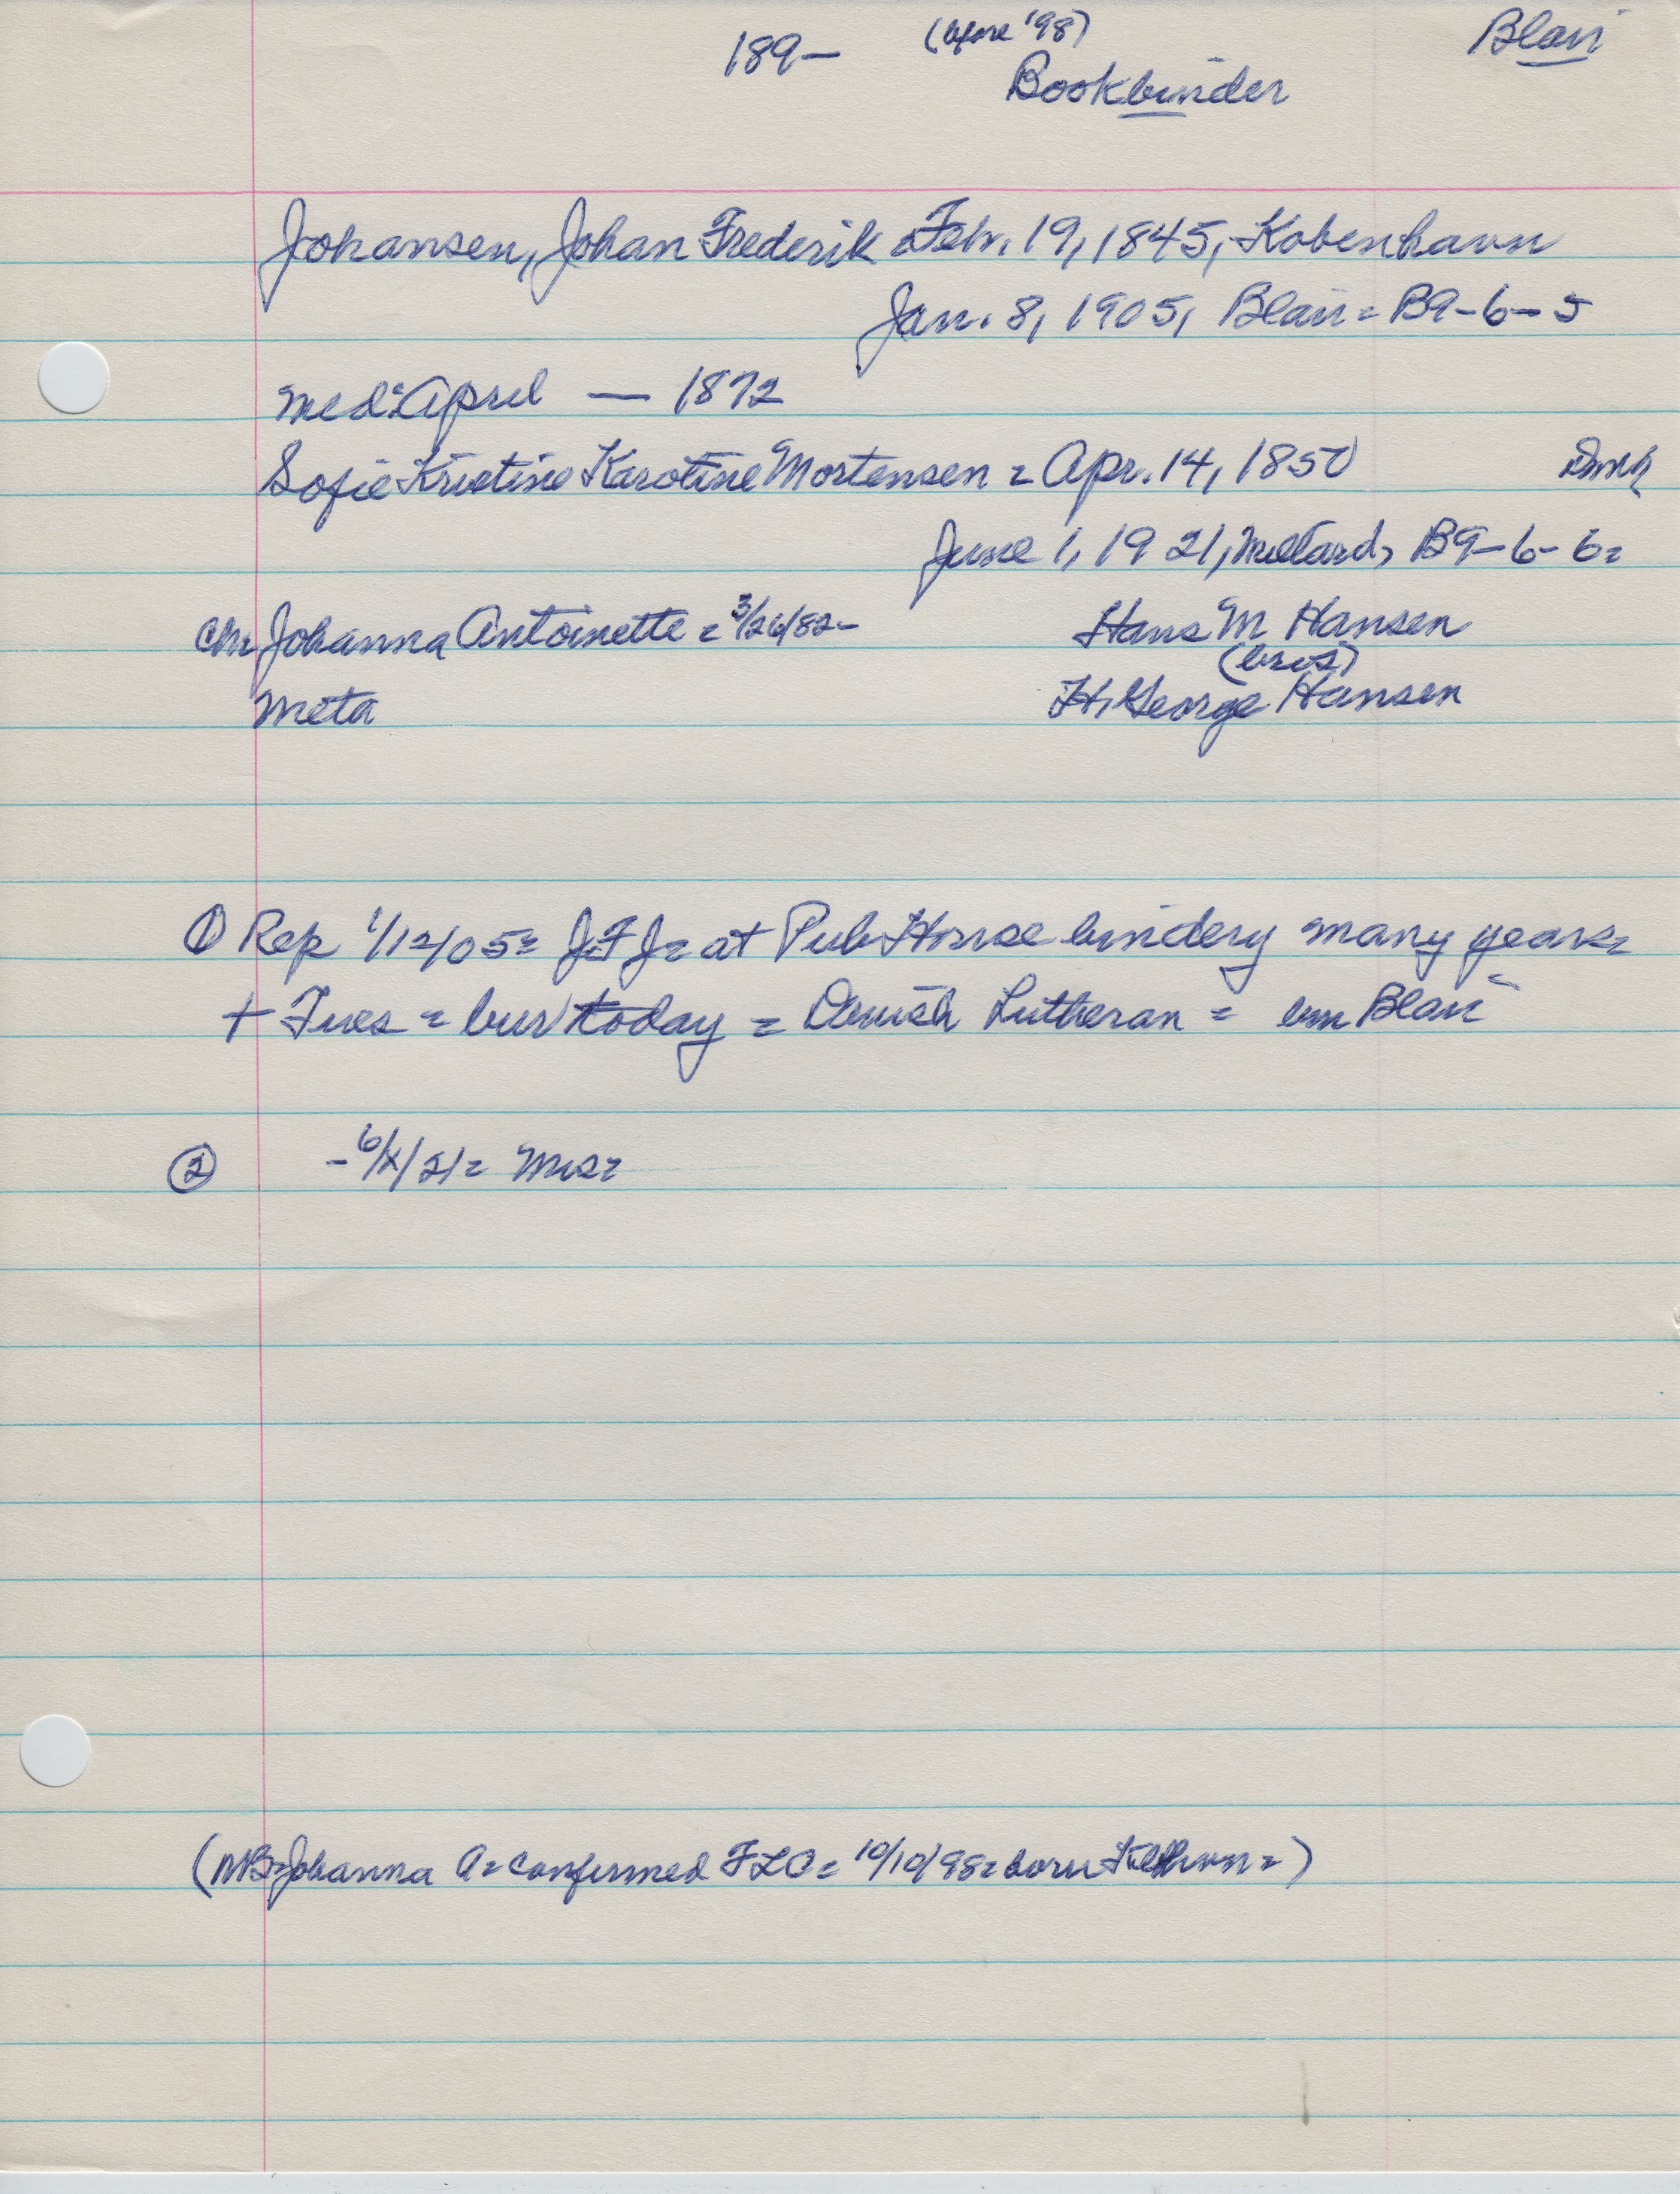 189- (before '98) Blair
Bookbinder
Johansen, Johan Frederik = Feb. 19, 1845, Kobenhavn
Jan. 8, 1905, Blair = B9-6-5
med: April — 1872
Sofie Kristine Karoline Mortensen = Apr. 14, 1850 Dmk
June 1, 1921, Millard, B9-6-6=
Chr Johanna Antoinette = 3/26/82- Hans M Hansen
(bros)
Meta H. George Hansen
① Rep 1/12/05= JFJ= at Pub House bindery many years=
+ Tues = bur today = Danish Lutheran = Blair
② -6/ /21= Mrs=
(NB=Johanna A= confirmed FLC= 10/10/98= born =)